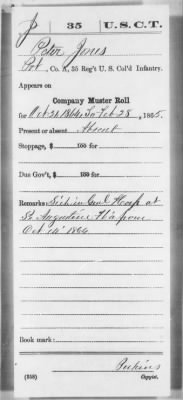 J | 35 | U.S.C.T.
Peter Jones
Pvt, Co. A, 35 Reg't U. S. Col'd Infantry.
Appears on
Company Muster Roll
for Oct 31 1864 to Feb 28, 1865.
Present or absent Absent
Stoppage, $ 100 for
Due Gov't, $ 100 for
Remarks: Sick in Genl Hosp at
St. Augustine Fla from
Oct 14" 1864
Book mark:
Perkins
(358) Copyist.